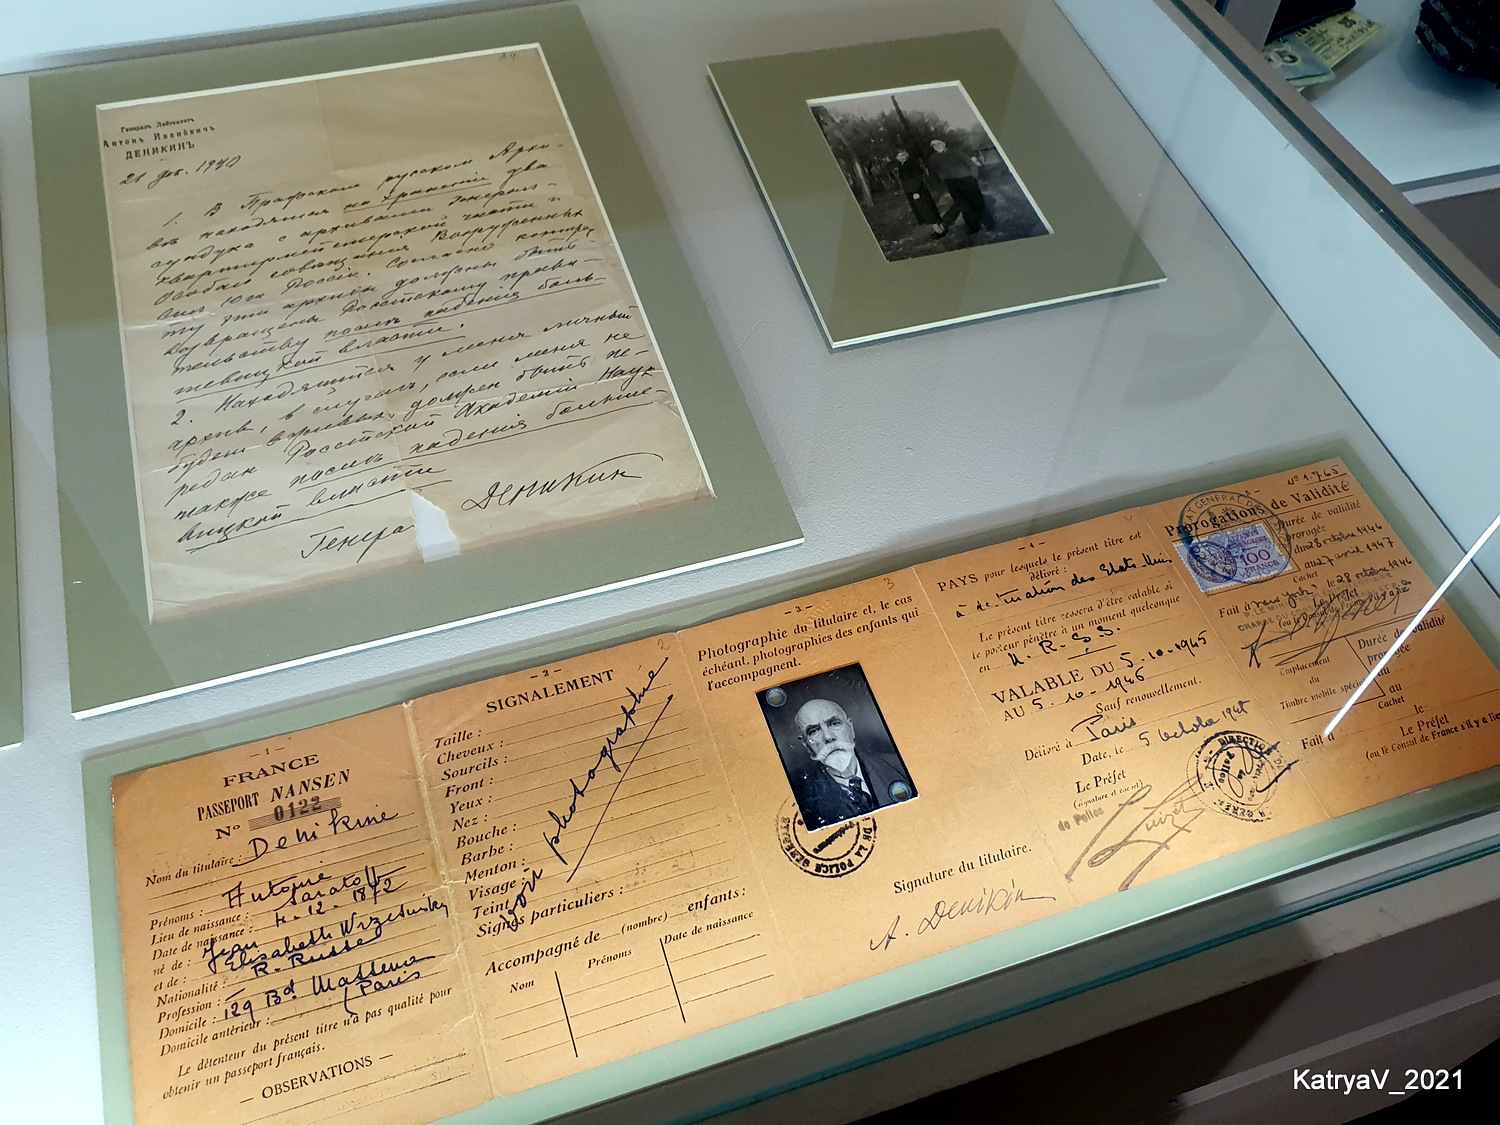 Генералъ Лейтенантъ
Антонъ Ивановичъ
ДЕНИКИНЪ
21 1940
1. В Пражском русском Архи-
вѣ находятся на храненіи два
сундука с архивами Генерал-
квартирмейстерской части и
Особаго совѣщанія Вооруженных
сил Юга Россіи. Согласно контрак-
ту эти архивы должны быть
возвращены Россійскому прави-
тельству послѣ паденія боль-
шевицкой власти.
2. Находящійся у меня личный
архив, в случаѣ, если меня не
будет в живых, должен быть пе-
редан Россійской Академіи Наук
также послѣ паденія больше-
вицкой власти
Генера
Деникин
- 1 -
FRANCE
PASSEPORT NANSEN
No 0122
Nom du titulaire : Denikine
Prénoms : Antoine
Lieu de naissance : Saratoff
Date de naissance : 4-12-1872
né de : Jean
et de : Elisabeth Wrzesinsky
Nationalité : R. Russe
Profession :
Domicile : 129 Bd Massena
Domicile antérieur : Paris
Le détenteur du présent titre n'a pas qualité pour
obtenir un passeport français.
— OBSERVATIONS —
2
- 2 -
SIGNALEMENT
Taille :
Cheveux :
Sourcils :
Front :
Yeux :
Nez :
Bouche :
Barbe :
Menton :
Visage :
Teint :
Signes particuliers :
voir photographie
Accompagné de (nombre) enfants :
Nom Prénoms Date de naissance
3
- 3 -
Photographie du titulaire et, le cas
échéant, photographies des enfants qui
l'accompagnent.
DE LA POLICE
Signature du titulaire.
A. Деникин
- 4 -
PAYS pour lesquels le présent titre est
délivré :
à destination des Etats Unis
Le présent titre cessera d'être valable si
le porteur pénètre à un moment quelconque
en U.R.S.S.
VALABLE DU 5-10-1945
AU 5-10-1946
Sauf renouvellement.
Délivré à Paris
Date, le 5 octobre 1945
Le Préfet
(signature et cachet)
de Police
DIRECTION
No 1.765
Prorogations de Validité
100
FRANCS
Durée de validité
prorogée
du 28 octobre 1946
au 27 avril 1947
Cachet
Fait à New York le 28 octobre 1946
Le Préfet
(ou le Consul de France
Emplacement
du
Timbre mobile spécial
Durée de validité
prorogée
du
au
Cachet
Fait à le
Le Préfet
(ou le Consul de France s'il y a lieu)
KatryaV_2021